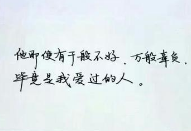 他即便有千般不好，万般辜负，
毕竟是我爱过的人。